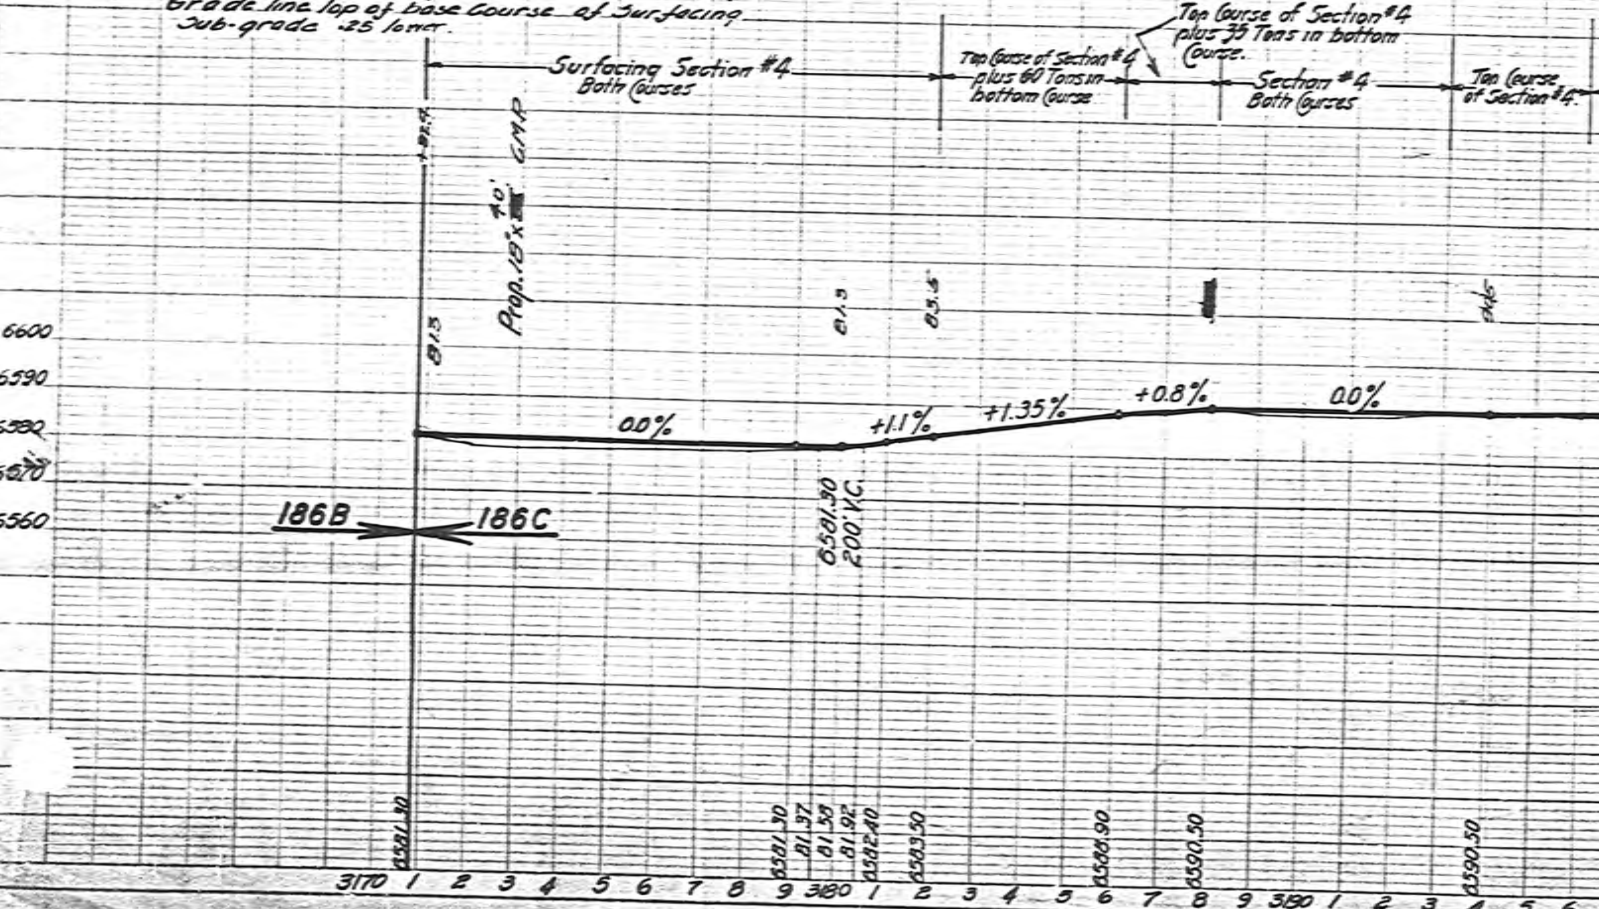 Grade line top of base Course of Surfacing
Sub-grade .25 lower.
Surfacing Section #4
Both Courses
Top Course of Section #4
plus 60 Tons in
bottom Course
Top Course of Section #4
plus 35 Tons in bottom
Course.
Section #4
Both Courses
Top Course
of Section #4.
Prop. 18" x 40' C.M.P.
81.3
81.3
83.5
6600
6590
6580
6570
6560
0.0%
+1.1%
+1.35%
+0.8%
0.0%
186B
186C
6581.30
200' V.C.
6581.30
6581.30
81.37
81.58
81.92
6582.40
6583.50
6588.90
6590.50
6590.50
3170 1 2 3 4 5 6 7 8 9 3180 1 2 3 4 5 6 7 8 9 3190 1 2 3 4 5 6